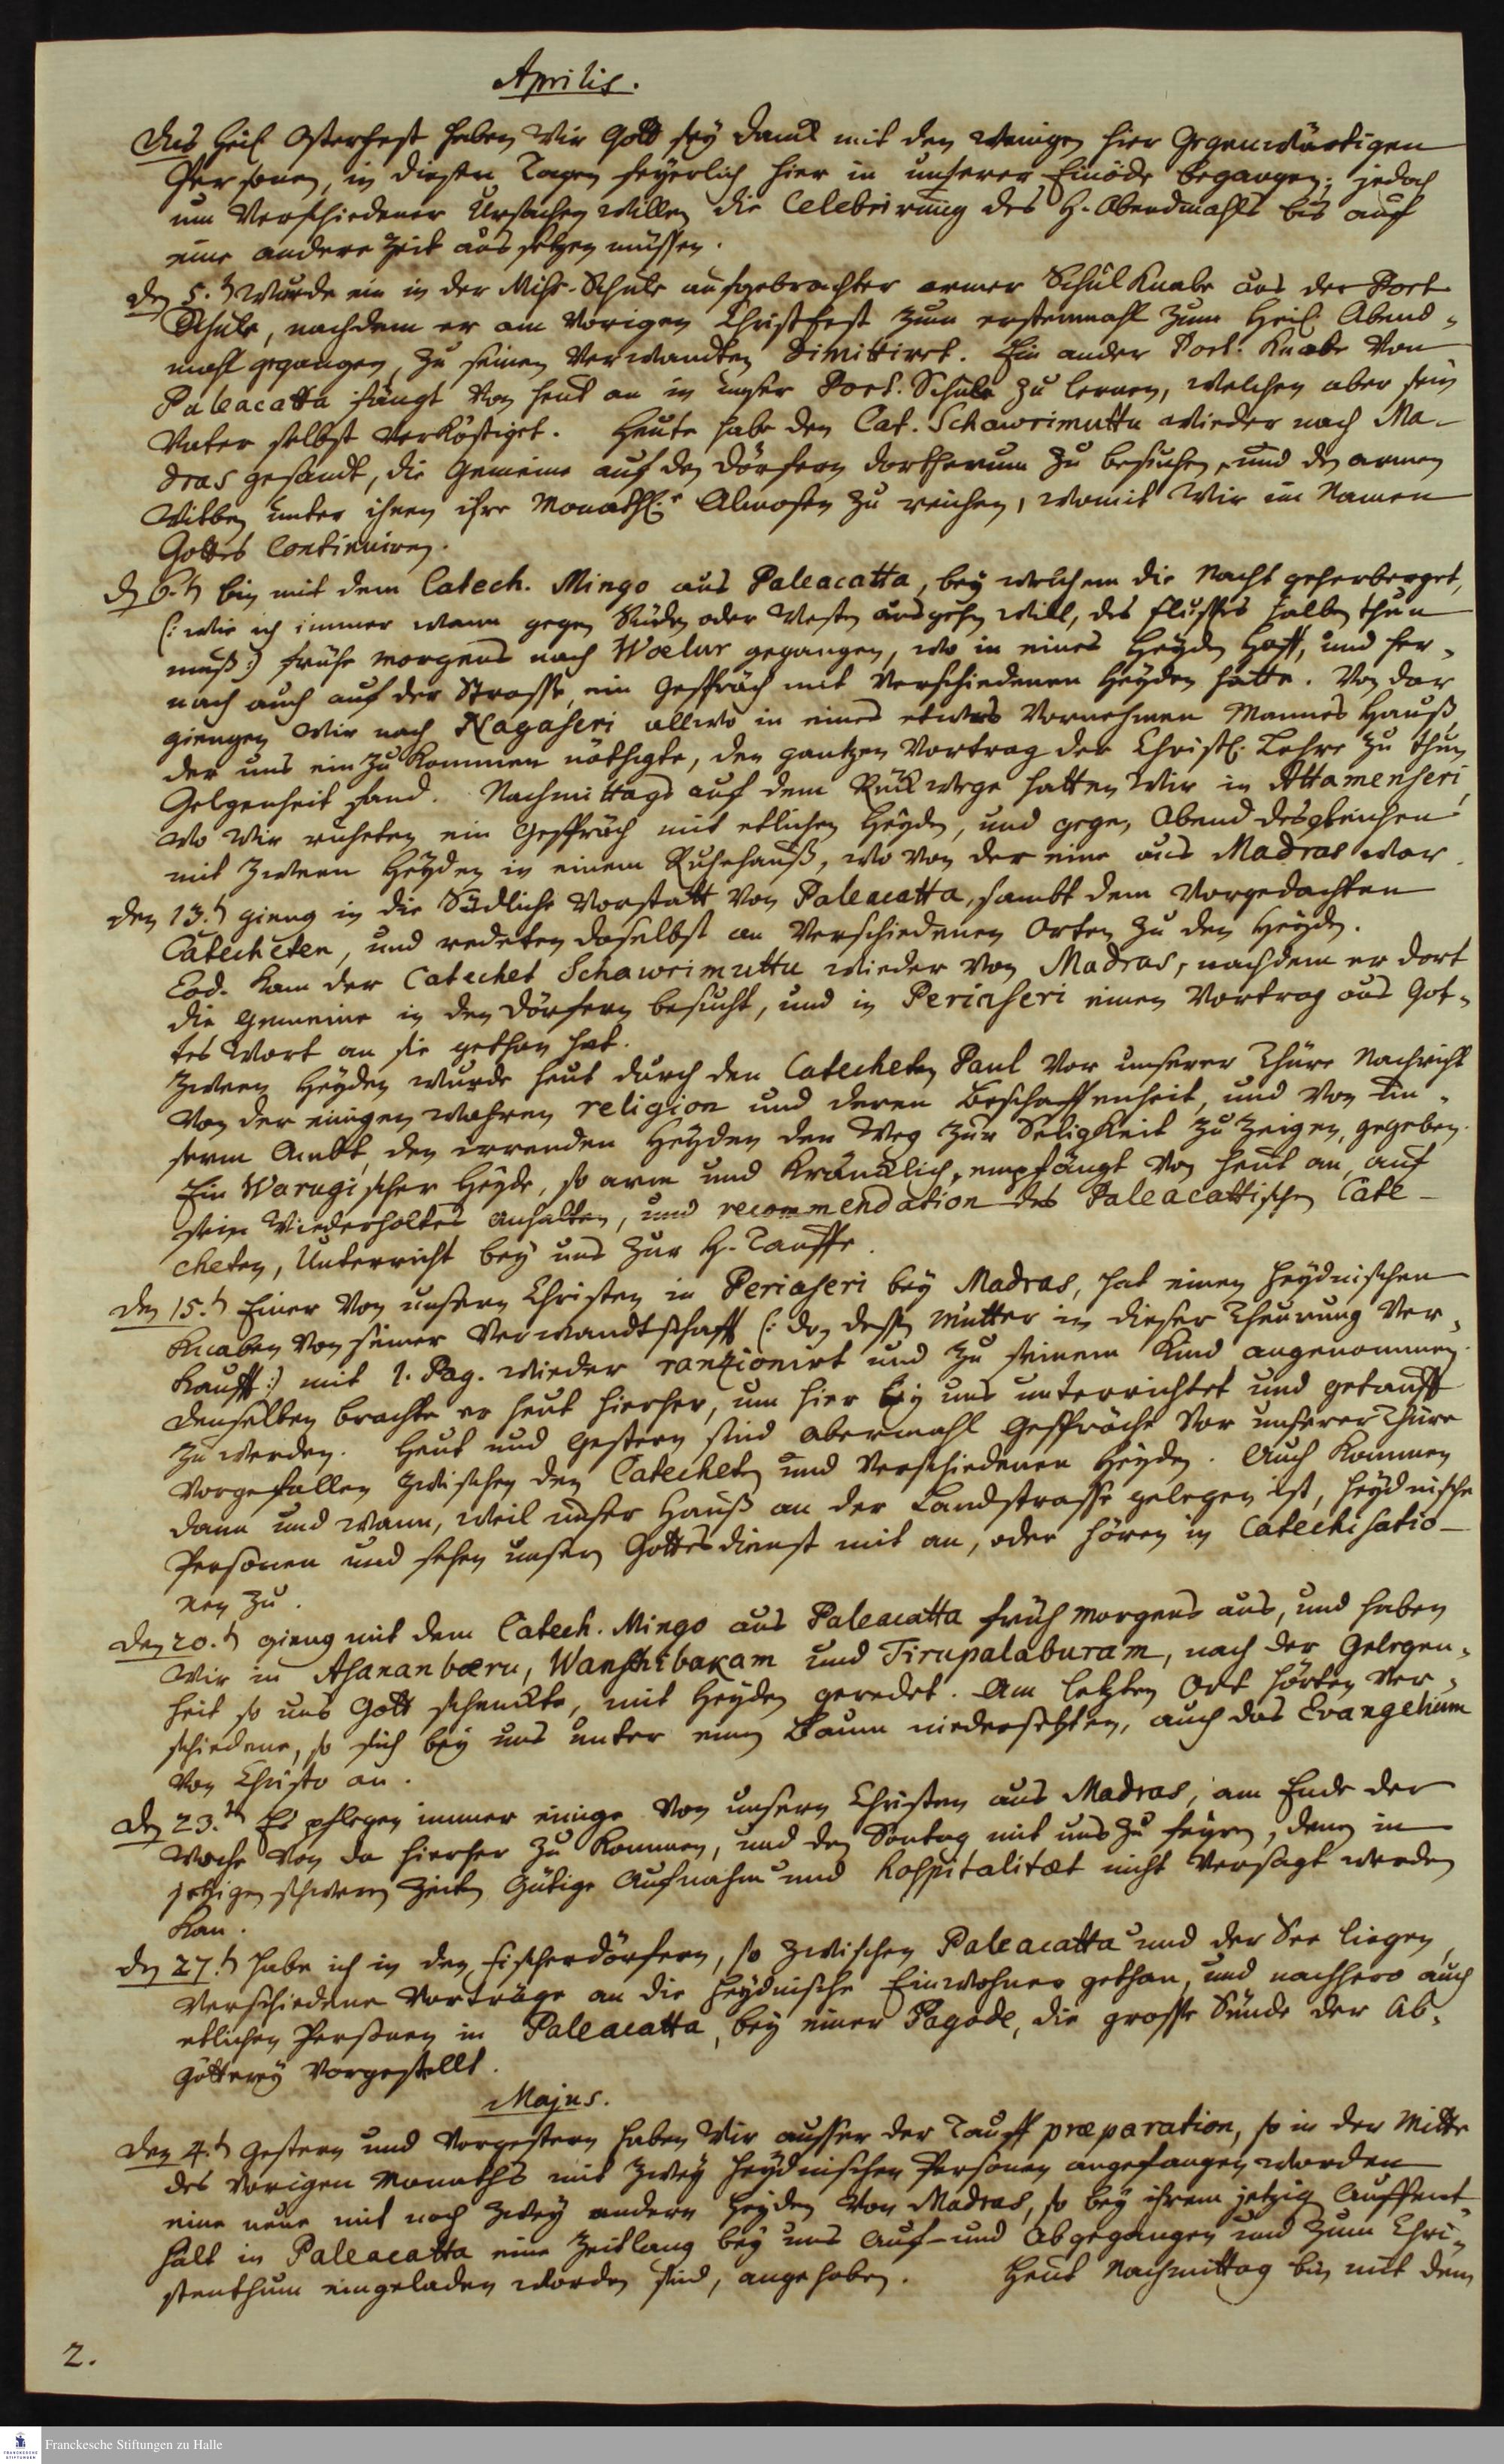 Aprilis.
Das heil. Osterfest haben wir Gott sey danck mit den wenigen hier gegenwärtigen
Personen, in diesen Tagen feyerlich hier in unserer Einöde begangen; jedoch
um verschiedener Ursachen willen die Celebrirung des H. Abendmahls bis auf
eine andere Zeit aussetzen müssen.
den 5.t wurde ein in der Miss.-Schule aufgebrachter armer Schulknabe aus der Port.
Schule, nachdem er am vorigen Christfest zum erstenmahl zum heil. Abend-
mahl gegangen, zu seinen Verwandten dimittiret. Ein ander Port. Knabe von
Paleacatta fängt von heut an in unser Port. Schule zu lernen, welchen aber sein
Vater selbst verköstiget. Heute habe den Cat. Schawrimuttu wieder nach Ma-
dras gesandt, die Gemeine auf den Dörfern dortherum zu besuchen, und den armen
Witben unter ihnen ihre Monathl. Almosen zu reichen, womit wir im Namen
Gottes continuiren.
d. 6.t bin mit dem Catech. Mingo aus Paleacatta, bey welchem die Nacht geherberget,
(: wie ich immer wann gegen Süden oder Westen ausgehen will, des Flusses halben thun
muß :) frühe morgens nach Woelur gegangen, wo in eines Heyden Hoff, und her-
nach auch auf der Strasse, ein Gespräch mit verschiedenen Heyden hatte. Von dar
giengen wir nach Nagaseri allwo in eines etwas vornehmen Mannes Hauß,
der uns ein zu kommen nöthigte, den gantzen Vortrag der Christl. Lehre zu thun,
Gelgenheit fand. Nachmittags auf dem Rückwege hatten wir in Attamenseri,
wo wir ruheten ein Gespräch mit etlichen Heyden, und gegen Abend desgleichen
mit zween Heyden in einem Ruhehauß, wo von der eine aus Madras war.
den 13.t gieng in die Südliche Vorstatt von Paleacatta, sambt dem vorgedachten
Catecheten, und redeten daselbst an verschiedenen Orten zu den Heyden.
Eod. kam der Catechet Schawrimuttu wieder von Madras, nachdem er dort
die Gemeine in den Dörfern besucht, und in Periaseri einen Vortrag aus Got-
tes Wort an sie gethan hat.
Zween Heyden wurde heut durch den Catecheten Paul vor unserer Thüre Nachricht
von der einigen wahren religion und deren Beschaffenheit, und von un-
serm Ambt, den irrenden Heyden den Weg zur Seligkeit zu zeigen, gegeben.
Ein Warugischer Heyde, so arm und kräncklich, empfängt von heut an, auf
sein wiederholtes anhalten, und recommendation des Paleacattischen Cate-
cheten, Unterricht bey uns zur H. Tauffe.
den 15.t Einer von unsern Christen in Periaseri bey Madras, hat einen heydnischen
Knaben von seiner Verwandtschafft (: den dessen Mutter in dieser Theurung ver-
kaufft :) mit 1. Pag. wieder rantzionirt und zu seinem Kind angenommen.
Denselben brachte er heut hierher, um hier bey uns unterrichtet und getaufft
zu werden. Heut und gestern sind abermahl Gespräche vor unserer Thüre
vorgefallen zwischen den Catecheten und verschiedenen Heyden. Auch kommen
dann und wann, weil unser Hauß an der Landstrasse gelegen ist, heydnische
Personen und sehen unsern Gottesdienst mit an, oder hören in Catechisatio-
nen zu.
den 20.t gieng mit dem Catech. Mingo aus Paleacatta früh morgens aus, und haben
wir in Asananboeru, Wanschibakam und Tirupalaburam, nach der Gelegen-
heit so uns Gott schenckte, mit Heyden geredet. Am letzten Ort hörten ver-
schiedene, so sich bey uns unter einem Baum niedersetzten, auch das Evangelium
von Christo an.
den 23.t Es pflegen immer einige von unsern Christen aus Madras, am Ende der
Woche von da hierher zu kommen, und den Sontag mit uns zu feyern, denen in
jetzigen schweren Zeiten gütige Aufnahm und hospitalitæt nicht versagt werden
kan.
den 27.t habe ich in den Fischerdörfern, so zwischen Paleacatta und der See liegen,
verschiedene Vorträge an die heydnische Einwohner gethan, und nachhero auch
etlichen Personen in Paleacatta, bey einer Pagode, die grosse Sünde der Ab-
götterey vorgestellt.
Majus.
den 4.t Gestern und vorgestern haben wir ausser der Tauff præparation, so in der Mitte
des vorigen Monaths mit zwey heydnischen Personen angefangen worden
eine neue mit noch zwey andern Heyden von Madras, so bey ihrem jetzigen Auffent-
halt in Paleacatta eine Zeitlang bey uns auf- und abgegangen und zum Chri-
stenthum eingeladen worden sind, angehoben. Heut Nachmittag bin mit dem
2.
Franckesche Stiftungen zu Halle